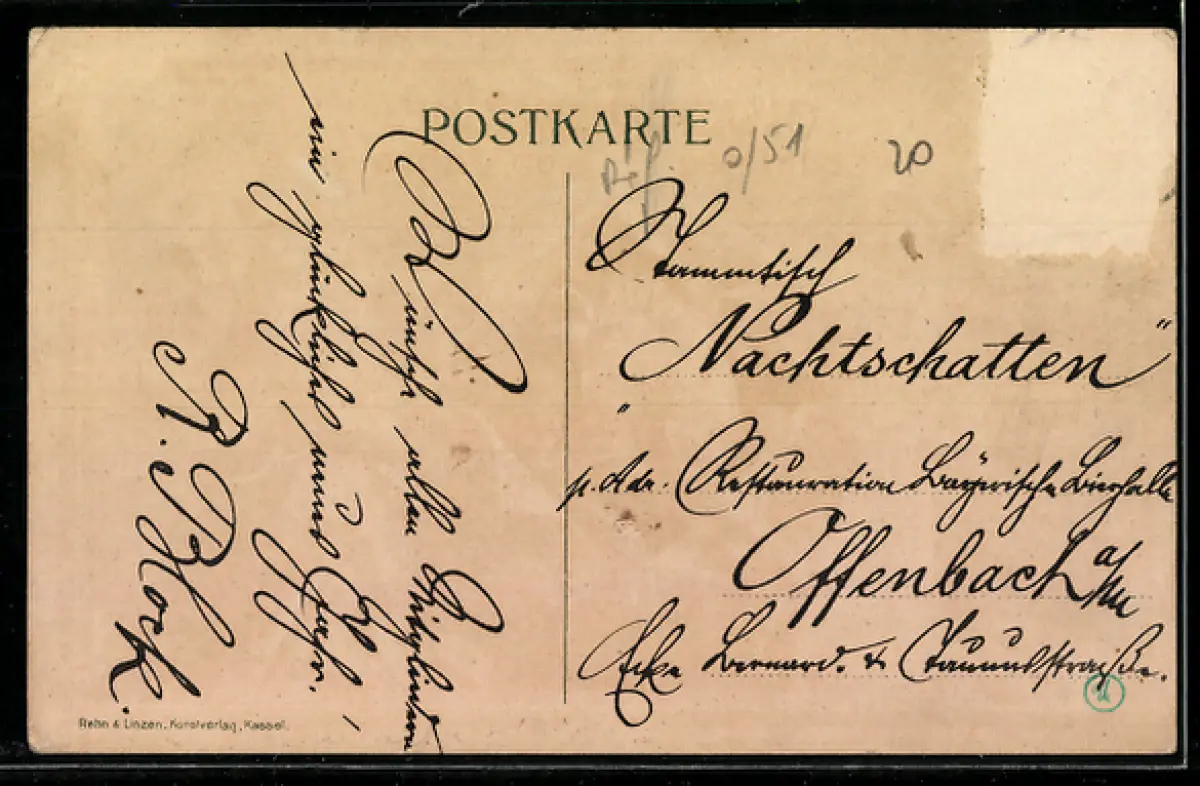 POSTKARTE
Ref. 0/51
20
Wünsche allen Mitgliedern
ein glückliches neues Jahr.
R. Block.
Stammtisch
„Nachtschatten“
p. Adr. Restauration Bayrische Bierhalle
Offenbach a/M
Ecke Bernard. & Taunusstraße.
Rehn & Linzen, Kunstverlag, Kassel.